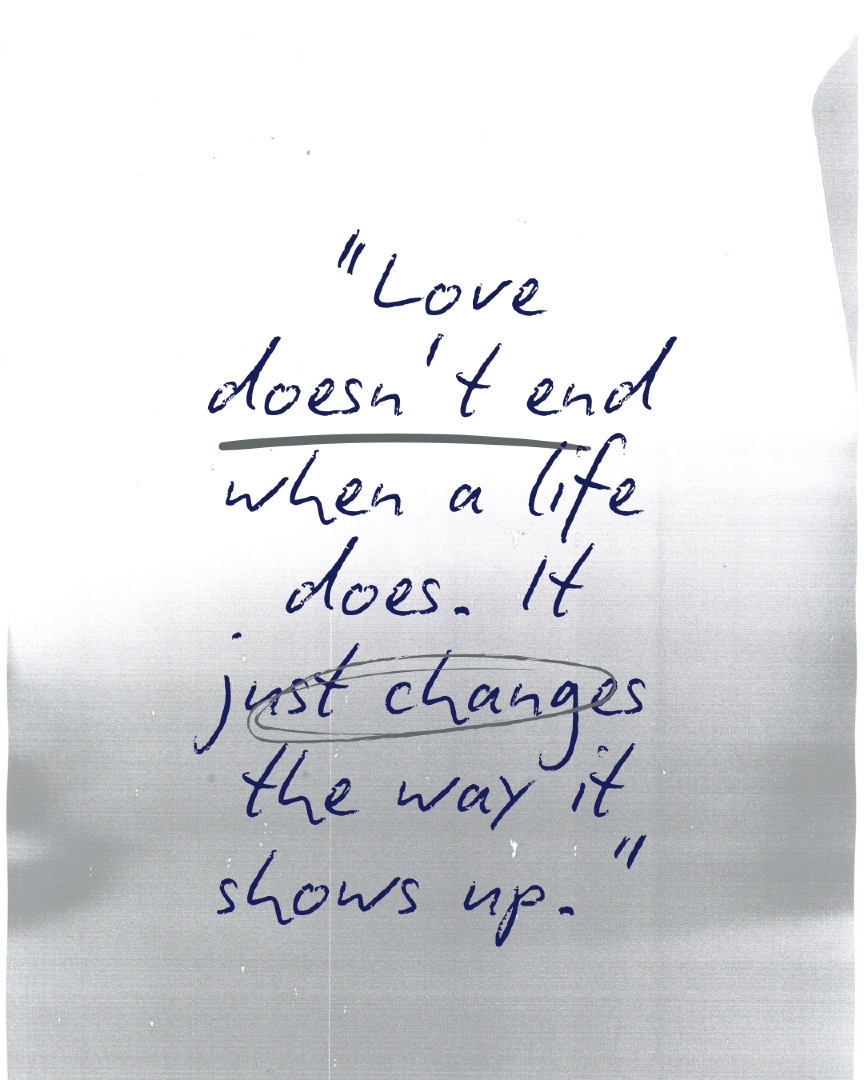 "Love
doesn't end
when a life
does. It
just changes
the way it
shows up."